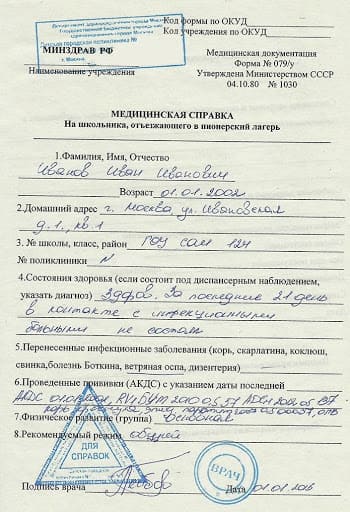 Департамент здравоохранения города Москвы
Государственное бюджетное учреждение
здравоохранения города Москвы
Детская городская поликлиника №
г. Москва
Код формы по ОКУД
Код учреждения по ОКУД
МИНЗДРАВ РФ
Наименование учреждения
Медицинская документация
Форма № 079/у
Утверждена Министерством СССР
04.10.80 № 1030
МЕДИЦИНСКАЯ СПРАВКА
На школьника, отъезжающего в пионерский лагерь
1.Фамилия, Имя, Отчество
Иванов Иван Иванович
Возраст 01.01.2002
2.Домашний адрес г. Москва, ул. Ивановская
д.1, кв.1
3. № школы, класс, район ГОУ СОШ 124
№ поликлиники N
4.Состояния здоровья (если состоит под диспансерным наблюдением,
указать диагноз) Здоров. За последние 21 день
в контакте с инфекционными
больными не состоял
5.Перенесенные инфекционные заболевания (корь, скарлатина, коклюш,
свинка,болезнь Боткина, ветряная оспа, дизентерия)
6.Проведенные прививки (АКДС) с указанием даты последней
7.Физическое развитие (группа) Основная
8.Рекомендуемый режим общий
ДЛЯ
СПРАВОК
ВРАЧ
Подпись врача
Дата 01.01.2016